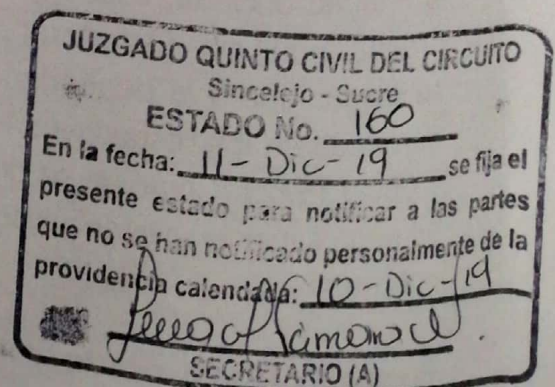 JUZGADO QUINTO CIVIL DEL CIRCUITO
Sincelejo - Sucre
ESTADO No. 160
En la fecha: 11-Dic-19 se fija el
presente estado para notificar a las partes
que no se han notificado personalmente de la
providencia calendada: 10-Dic-19
SECRETARIO (A)